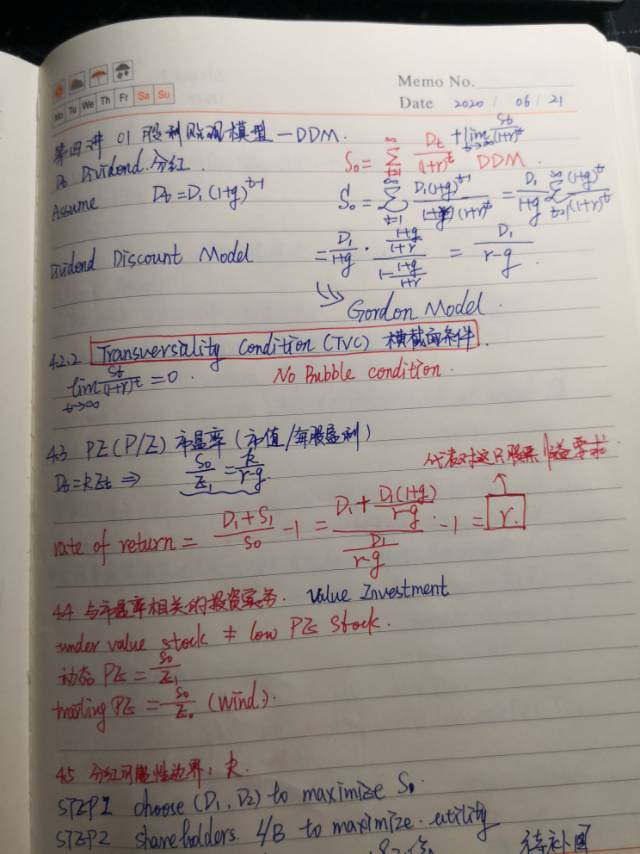 Mo Tu We Th Fr Sa Su
Memo No.
Date 2020 / 06 / 21
第四讲 01 股利贴现模型 — DDM.
S₀ = ∑ Dt/(1+r)^t + lim t→∞ St/(1+r)^t DDM
Dt Dividend 分红.
Assume Dt = D₁(1+g)^(t-1)
S₀ = ∑ t=1 ∞ D₁(1+g)^(t-1)/(1+r)^t = D₁/(1+g) ∑ t=1 ∞ (1+g)^t/(1+r)^t
Dividend Discount Model = D₁/(1+g) · ((1+g)/(1+r))/(1-(1+g)/(1+r)) = D₁/(r-g).
Gordon Model.
4.2.2 Transversality Condition (TVC) 横截面条件.
lim t→∞ St/(1+r)^t = 0. No Bubble condition.
4.3 PE(P/E) 市盈率 (市值/每股盈利)
Dt = kEt ⇒ S₀/E₁ = k/(r-g).
代表对这只股票收益要求.
rate of return = (D₁+S₁)/S₀ - 1 = (D₁ + D₁(1+g)/(r-g))/(D₁/(r-g)) - 1 = r.
4.4 与市盈率相关的投资实务. Value Investment
under value stock ≠ low PE stock.
动态 PE = S₀/E₁
trailing PE = S₀/E₀ (wind).
4.5 分红可能性边界: k.
STEP1 choose (D₁, D₂) to maximize S₀.
STEP2 shareholders. L/B to maximize utility
待补图